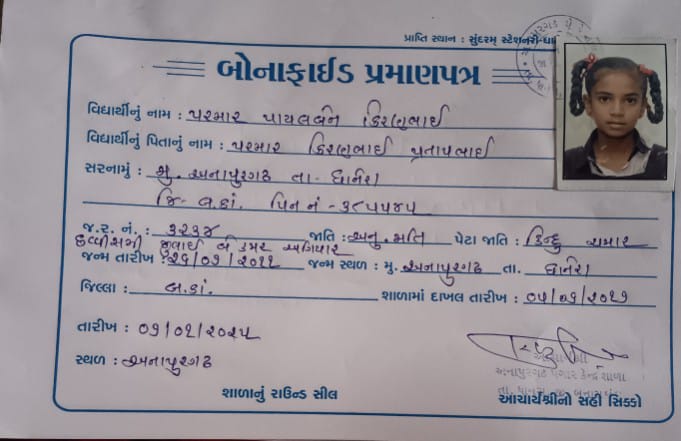 પ્રાપ્તિ સ્થાન : સુંદરમ્ સ્ટેશનરી-ધા
બોનાફાઈડ પ્રમાણપત્ર
વિદ્યાર્થીનું નામ : પરમાર પાયલબેન કિરણભાઈ
વિદ્યાર્થીનું પિતાનું નામ : પરમાર કિરણભાઈ પ્રતાપભાઈ
સરનામું : મુ. અનાપુરગઢ તા- ધાનેરા
જિ- બ.કાં. પિન નં - ૩૮૫૫૪૫
જ.ર. નં. : ૩૨૩૪ જાતિ : અનુ. જાતિ પેટા જાતિ : હિન્દુ ચમાર
છવ્વીસમી જુલાઈ બે હજાર અગિયાર
જન્મ તારીખ : ૨૬/૦૭/૨૦૧૧ જન્મ સ્થળ : મુ. અનાપુરગઢ તા. ધાનેરા
જિલ્લા : બ.કાં. શાળામાં દાખલ તારીખ :
તારીખ : ૦૭/૦૮/૨૦૨૫
સ્થળ : અનાપુરગઢ
અનાપુરગઢ પગાર કેન્દ્ર શાળા
શાળાનું રાઉન્ડ સીલ આચાર્યશ્રીનો સહી સિક્કો